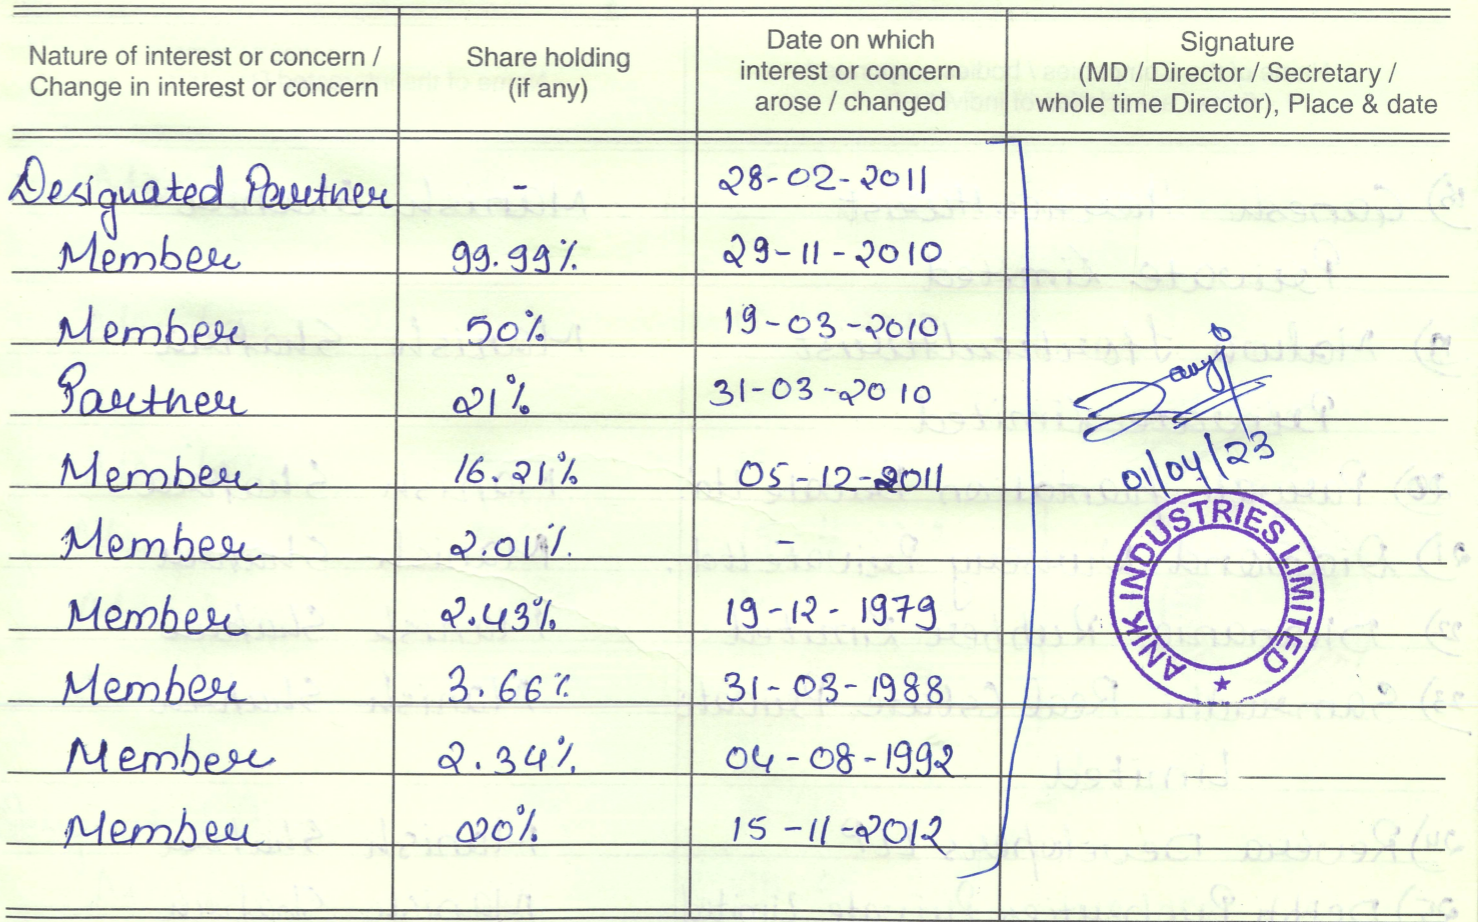 Nature of interest or concern / Change in interest or concern | Share holding (if any) | Date on which interest or concern arose / changed | Signature (MD / Director / Secretary / whole time Director), Place & date
Designated Partner - 28-02-2011
Member 99.99% 29-11-2010
Member 50% 19-03-2010
Partner 21% 31-03-2010
Member 16.21% 05-12-2011
Member 2.01% -
Member 2.43% 19-12-1979
Member 3.66% 31-03-1988
Member 2.34% 04-08-1992
Member 20% 15-11-2012
01/04/23
ANIK INDUSTRIES LIMITED